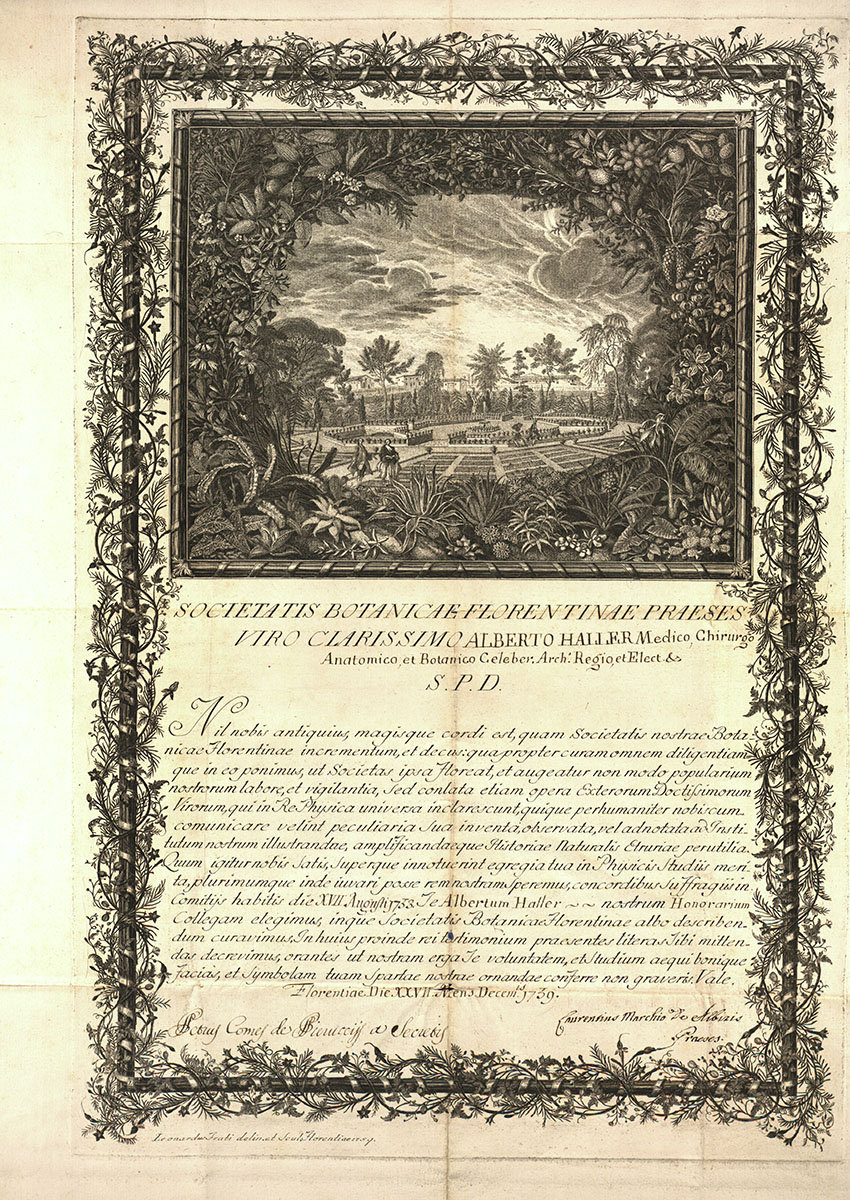 SOCIETATIS BOTANICAE FLORENTINAE PRAESES
VIRO CLARISSIMO ALBERTO HALLER Medico, Chirurgo
Anatomico, et Botanico Celeber. Arch. Regio, et Elect. &
S. P. D.
Nil nobis antiquius, magisque cordi est, quam Societatis nostrae Bota-
nicae Florentinae incrementum, et decus: quapropter curam omnem diligentiam
que in eo ponimus, ut Societas ipsa floreat, et augeatur non modo popularium
nostrorum labore, et vigilantia, sed conlata etiam opera Exterorum Doctissimorum
Virorum, qui in Re Physica universa inclarescunt, quique perhumaniter nobiscum
communicare velint peculiaria sua inventa, observata, vel adnotata ad Insti-
tutum nostrum illustrandae, amplificandaeque Historiae Naturalis Etruriae perutilia.
Quum igitur nobis satis, superque innotuerint egregia tua in Physicis Studiis meri-
ta, plurimumque inde iuvari posse rem nostram speremus, concordibus suffragiis in
Comitijs habitis die XVII. Augusti 1753 Te Albertum Haller ~ ~ nostrum Honorarium
Collegam elegimus, inque Societatis Botanicae Florentinae albo describen-
dum curavimus. In huius proinde rei testimonium praesentes literas Tibi mitten-
das decrevimus, orantes ut nostram erga Te voluntatem, et Studium aequi bonique
facias, et Symbolam tuam Spartae nostrae ornandae conferre non graveris. Vale.
Florentiae Die XXVII. Mens. Decem. 1739.
Petrus Comes de a Secretis
Laurentius Marchio De Albizis
Praeses.
Leonardus Frati delin. et Sculp. Florentiae